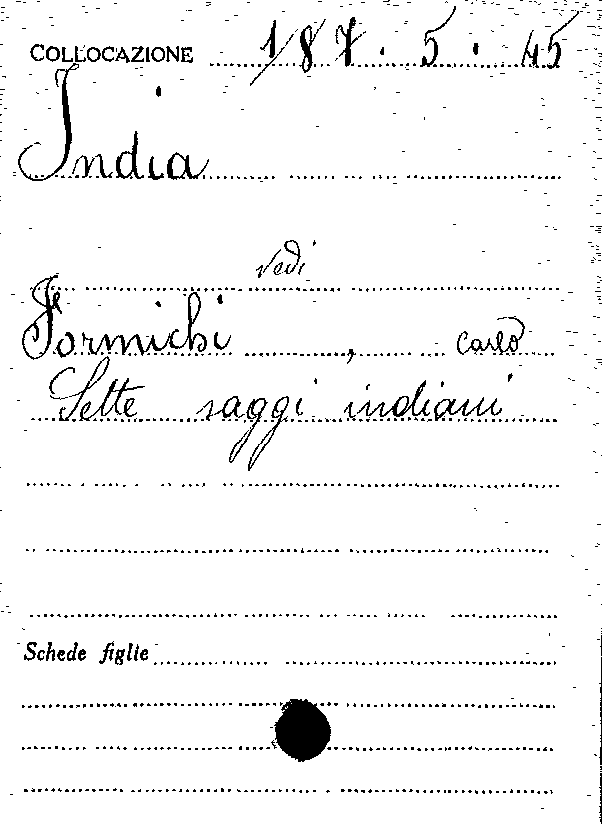 COLLOCAZIONE 187.5.45
India
vedi
Formichi, Carlo
Sette saggi indiani
Schede figlie